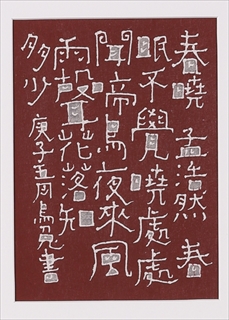 春曉 孟浩然 春
眠不覺曉處處
聞啼鳥夜來風
雨聲花落知
多少 庚子五周烏兔書